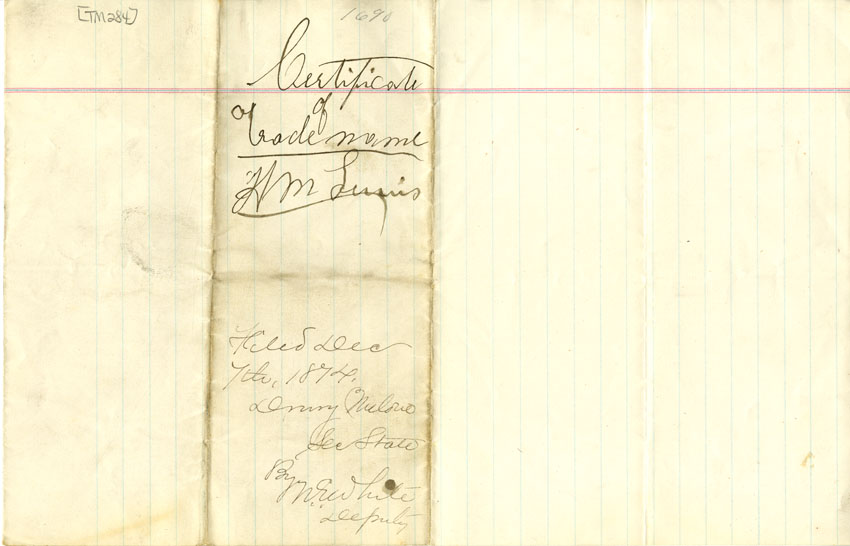 [TM284]
1690
Certificate
of
Trade name
H M Lewis
Filed Dec
7th, 1874.
Drury Melone
Sec State
By
W.E. White
Deputy